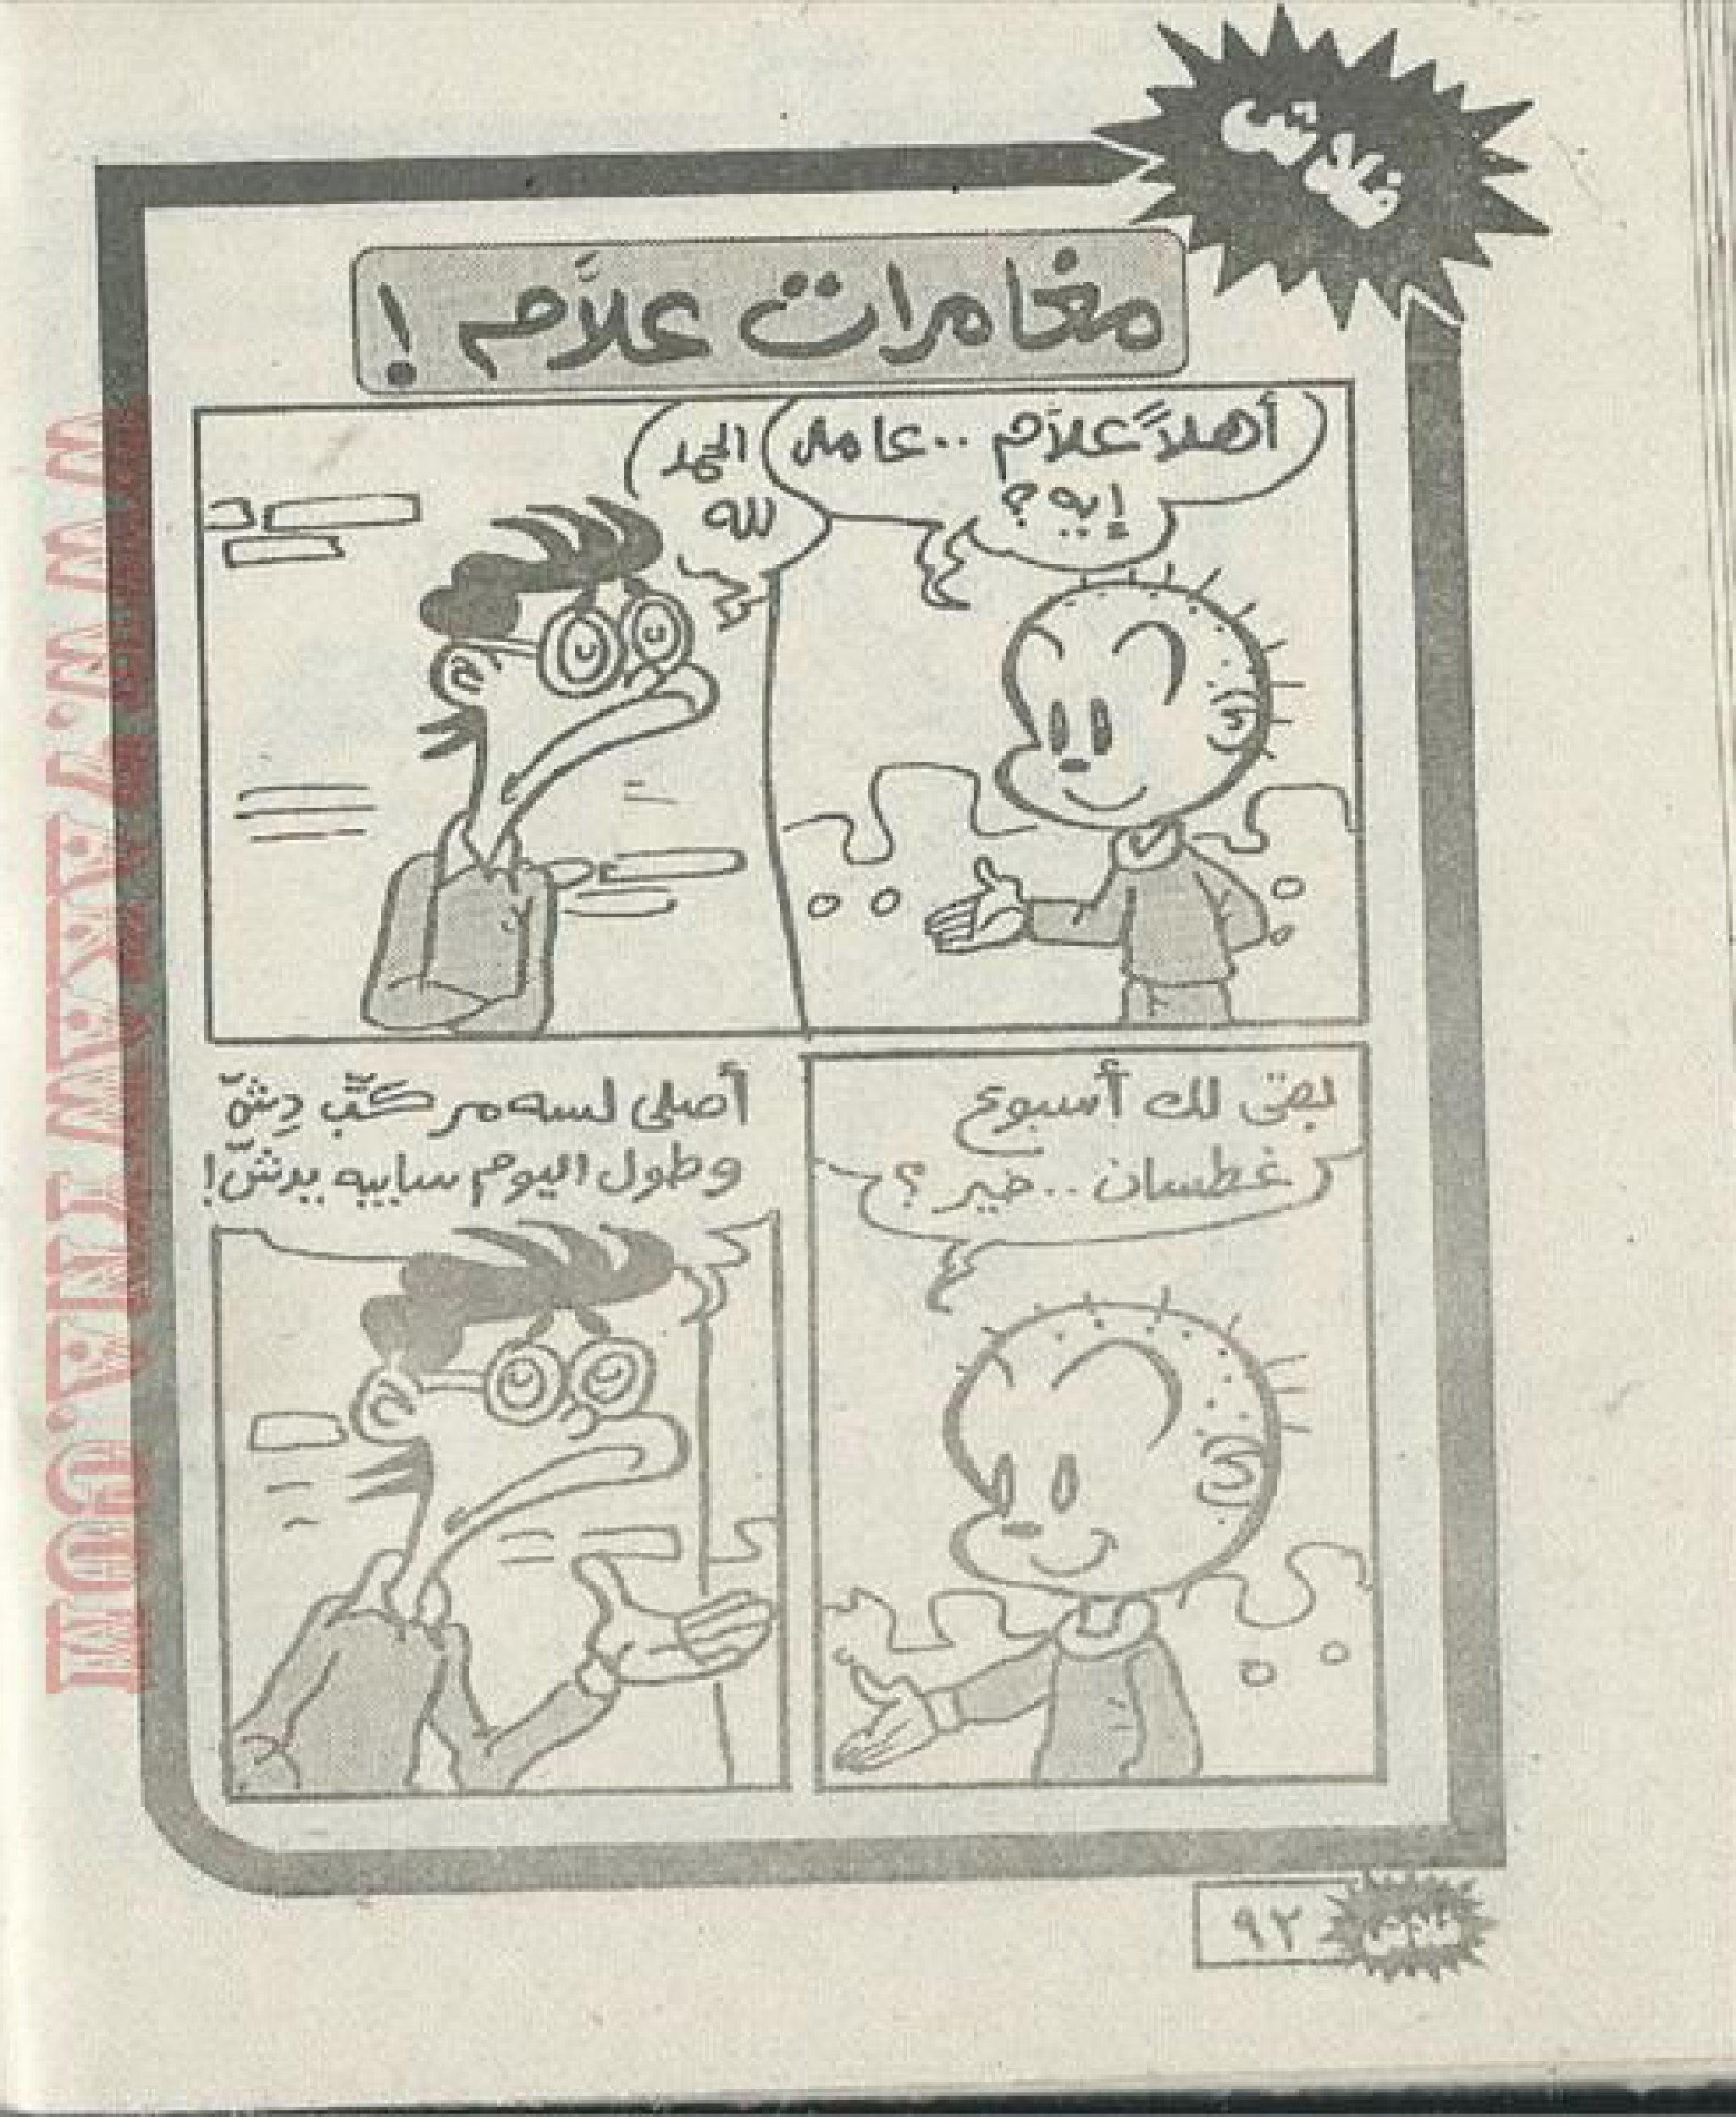 فلاش
مغامرات علاَّم !
أهلاً علاَّم .. عامل
إيه ؟
الحمد
لله
بقى لك أسبوع
غطسان .. خير ؟
أصلى لسه مركّب دِشّ
وطول اليوم سايبه يدشّ !
فلاش
٩٢